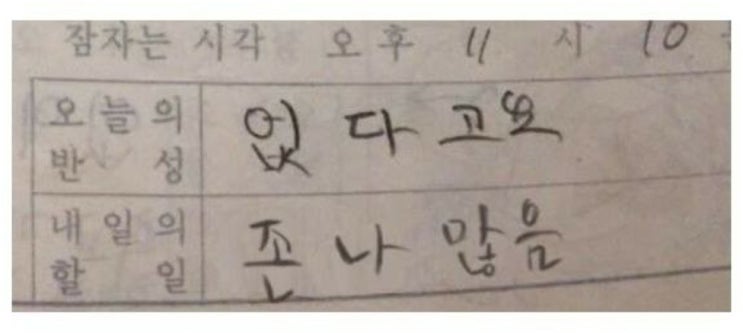 잠자는 시각 오후 11 시 10
오늘의 반성 없다고요
내일의 할일 존나 많음